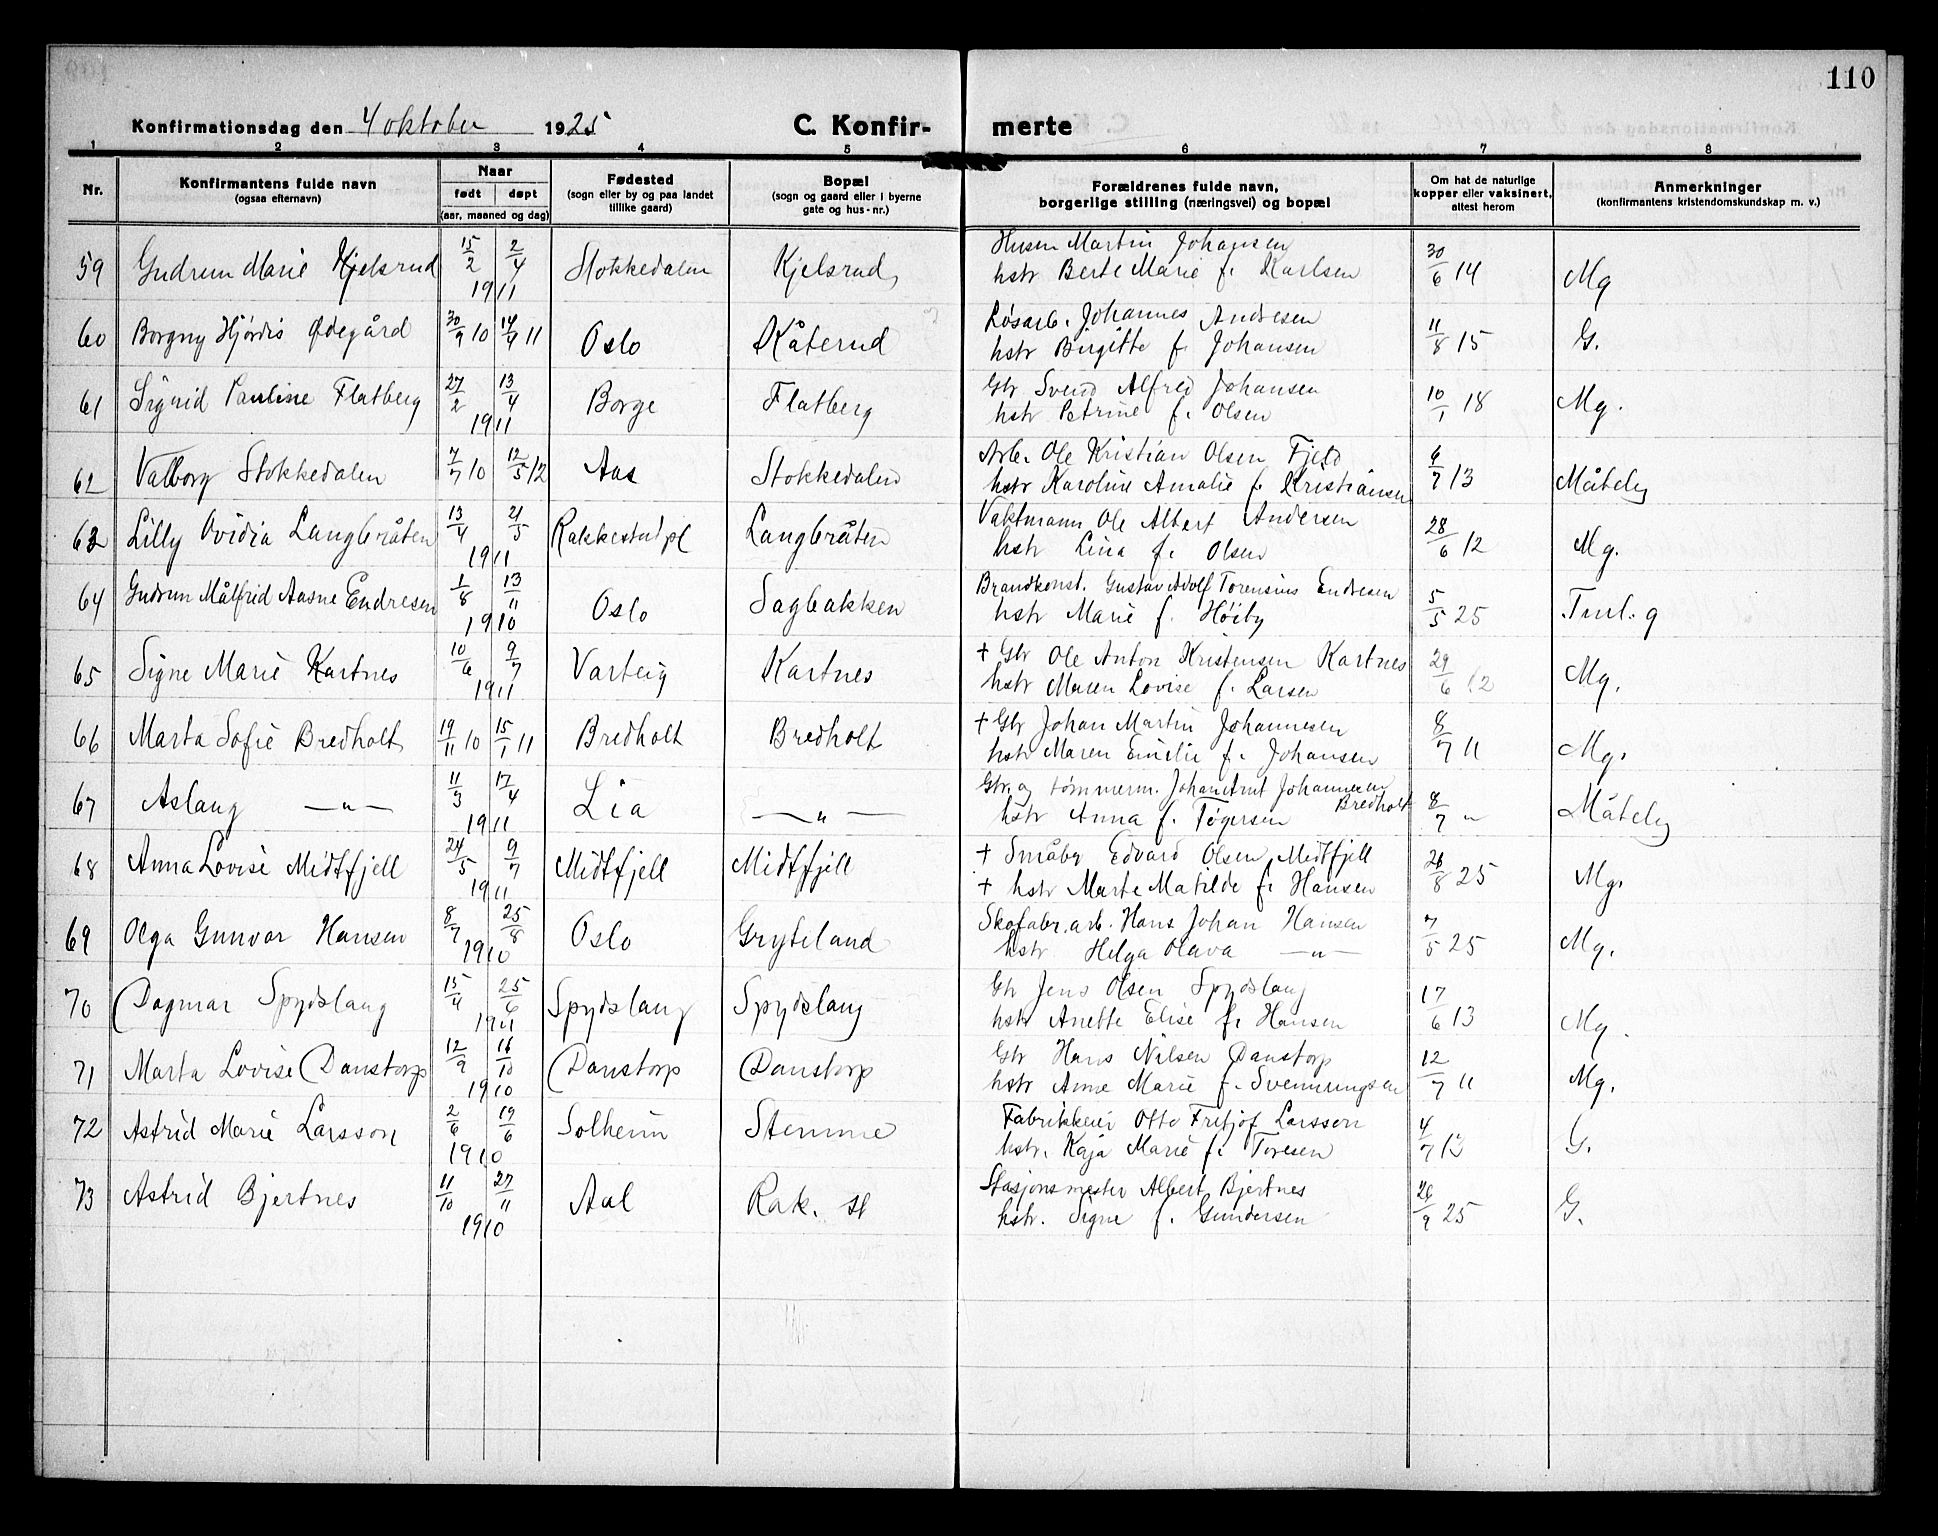 110
Konfirmationsdag den 4 oktober 1925 C. Konfir- merte
1 2 3 4 5 6 7 8
Nr. Konfirmantens fulde navn (ogsaa efternavn) Naar født døpt (aar, maaned og dag) Fødested (sogn eller by og paa landet tillike gaard) Bopæl (sogn og gaard eller i byerne gate og hus-nr.) Forældrenes fulde navn, borgerlige stilling (næringsvei) og bopæl Om hat de naturlige kopper eller vaksinert, attest herom Anmerkninger (konfirmantens kristendomskundskap m. v.)
59 Gudrun Marie Kjelsrud 15/2 2/4 1911 Stokkedalen Kjelsrud Husm Martin Johansen
hstr Berte Marie f. Karlsen 30/6 14 Mg
60 Borgny Hjørdis Ødegård 30/9 10 14/4 11 Oslo Kåterud Løsarb. Johannes Andresen
hstr Birgitte f. Johansen 11/8 15 G.
61 Sigrid Pauline Flatberg 27/2 13/4 1911 Borge Flatberg Gbr Svend Alfred Johansen
hstr Petrine f. Olsen 10/1 18 Mg.
62 Valborg Stokkedalen 7/7 10 12/5 12 Aas Stokkedalen Arb. Ole Kristian Olsen Fjeld
hstr Karoline Amalie f. Kristiansen 6/7 13 Måtelig
63 Lilly Ovidia Langbråten 13/4 21/5 1911 Rakkestad pl Langbråten Vaktmann Ole Albert Andersen
hstr Lina f. Olsen 28/6 12 Mg.
64 Gudrun Målfrid Aasne Endresen 1/8 13/11 1910 Oslo Sagbakken Brandkonst. Gustav Adolf Torensius Endresen
hstr Marie f. Høiby 5/5 25 Tml. g
65 Signe Marie Kartnes 10/6 9/7 1911 Varteig Kartnes + Gbr Ole Anton Kristensen Kartnes
hstr Maren Lovise f. Larsen 29/6 12 Mg.
66 Marta Sofie Bredholt 19/11 10 15/1 11 Bredholt Bredholt + Gbr Johan Martin Johannesen
hstr Maren Emilie f. Johansen 8/7 11 Mg.
67 Aslaug —"— 11/3 17/4 1911 Lia —"— Gbr. og tømmerm. Johan Arnt Johannesen Bredholt
hstr Anna f. Tøgersen 8/7 " Måtelig
68 Anna Lovise Midtfjell 24/5 9/7 1911 Midtfjell Midtfjell + Småbr Edvard Olsen Midtfjell
+ hstr Marte Matilde f. Hansen 26/8 25 Mg.
69 Olga Gunvor Hansen 8/7 25/8 1910 Oslo Gryteland Skofabr.arb. Hans Johan Hansen
hstr Helga Olava —"— 7/5 25 Mg.
70 Dagmar Spydslaug 15/4 25/6 1911 Spydslaug Spydslaug Gbr Jens Olsen Spydslaug
hstr Anette Elise f. Hansen 17/6 13 Mg.
71 Marta Lovise Danstorp 12/9 16/10 1910 Danstorp Danstorp Gbr Hans Nilsen Danstorp
hstr Anne Marie f. Svenningsen 12/7 11 Mg.
72 Astrid Marie Larsson 2/6 19/6 1910 Solheim Stemme Fabrikkeier Otto Fritjof Larsson
hstr. Kaja Marie f. Toresen 4/7 13 G.
73 Astrid Bjertnes 11/10 27/11 1910 Aal Rak. st Stasjonsmester Albert Bjertnes
hstr. Signe f. Gundersen 26/9 25 G.